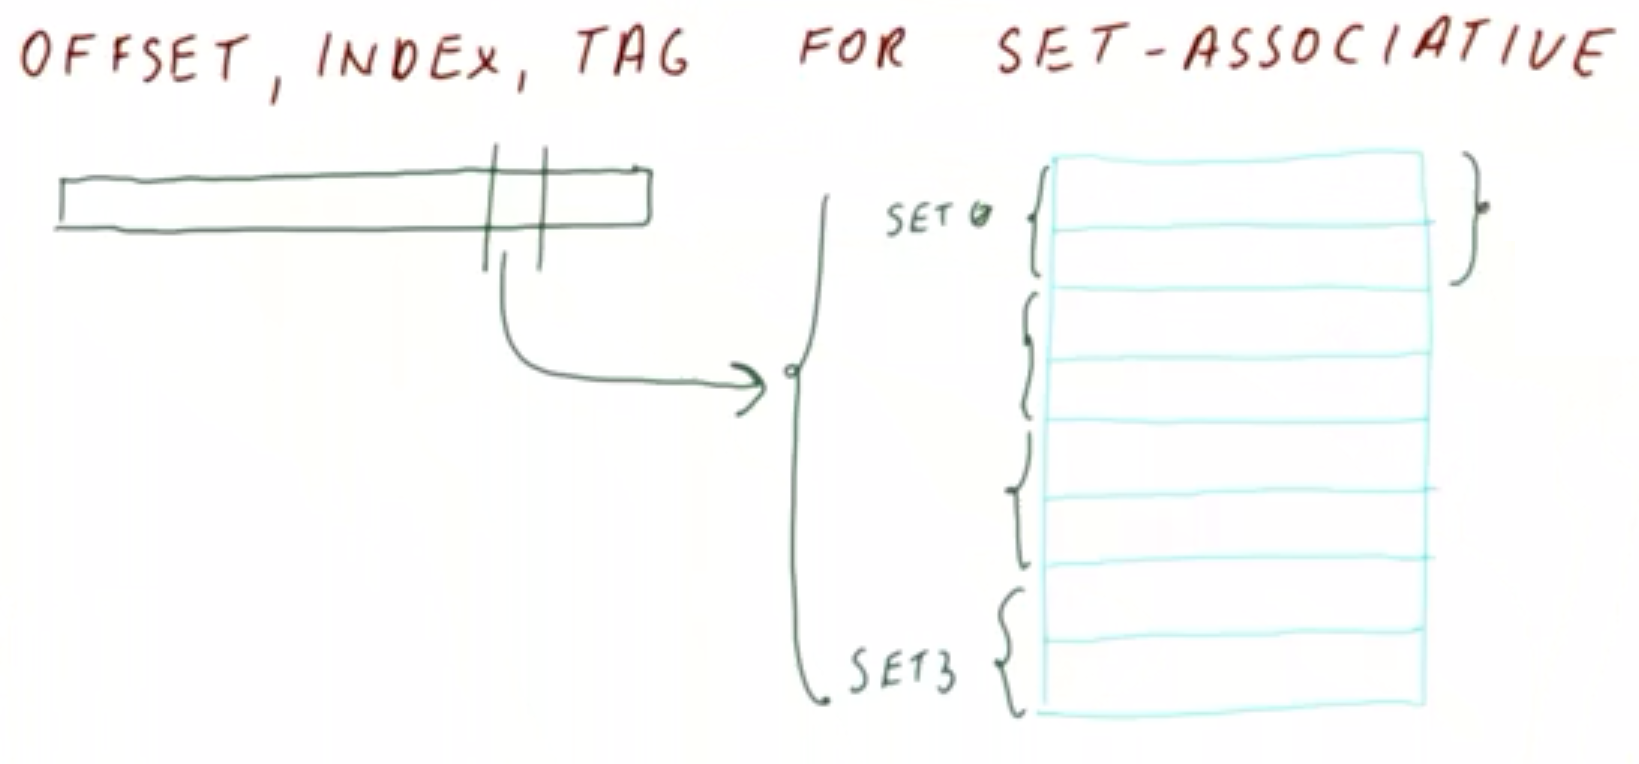 OFFSET, INDEX, TAG FOR SET-ASSOCIATIVE
SET 0
SET3